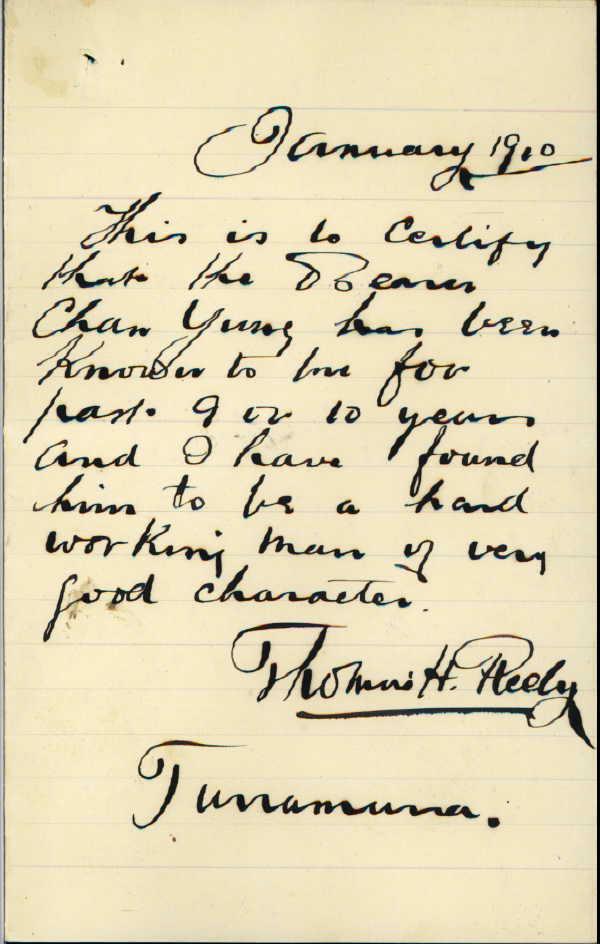 January 1910
This is to Certify
that the Bearer
Chan Yung has been
Known to me for
past 9 or 10 years
and I have found
him to be a hard
working man of very
good character.
Thomas H.
Turramurra.